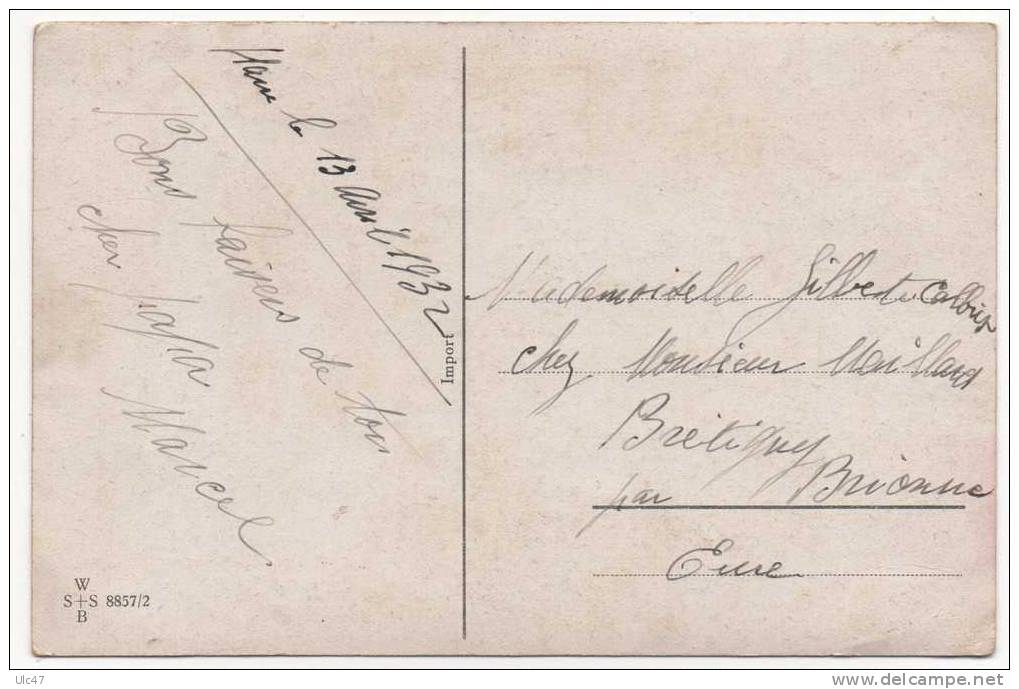 Havre le 13 Avril 1932
Bons baisers de ton
cher papa
Marcel
Import
Mademoiselle Gilberte
chez Monsieur Maillard
Brétigny
par Brionne
Eure
W
S+S 8857/2
B
Ulc47
www.delcampe.net